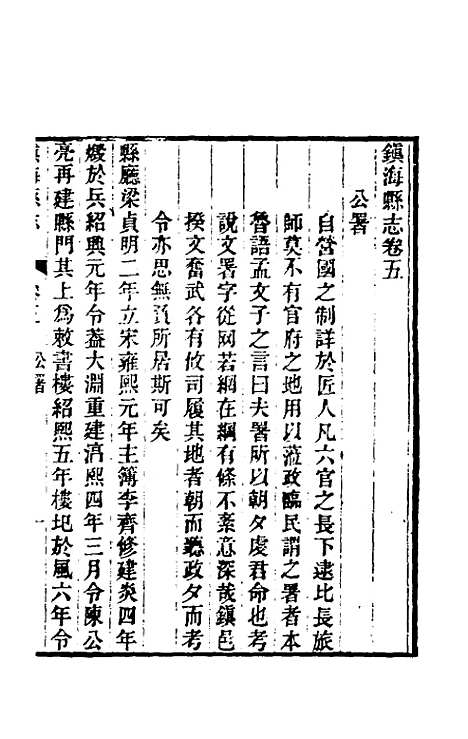 鎮海縣志卷五
公署
自營國之制詳於匠人凡六官之長下逮比長旅
師莫不有官府之地用以蒞政臨民謂之署者本
魯語孟文子之言曰夫署所以朝夕虔君命也考
說文署字從网若綱在綱有條不紊意深哉鎮邑
揆文奮武各有攸司履其地者朝而聽政夕而考
令亦思無負所居斯可矣
縣廳梁貞明二年立宋雍熙元年主簿李齊修建炎四年
燬於兵紹興元年令蓋大淵重建淳熙四年三月令陳公
亮再建縣門其上為敕書樓紹熙五年樓圯於風六年令
公署
一